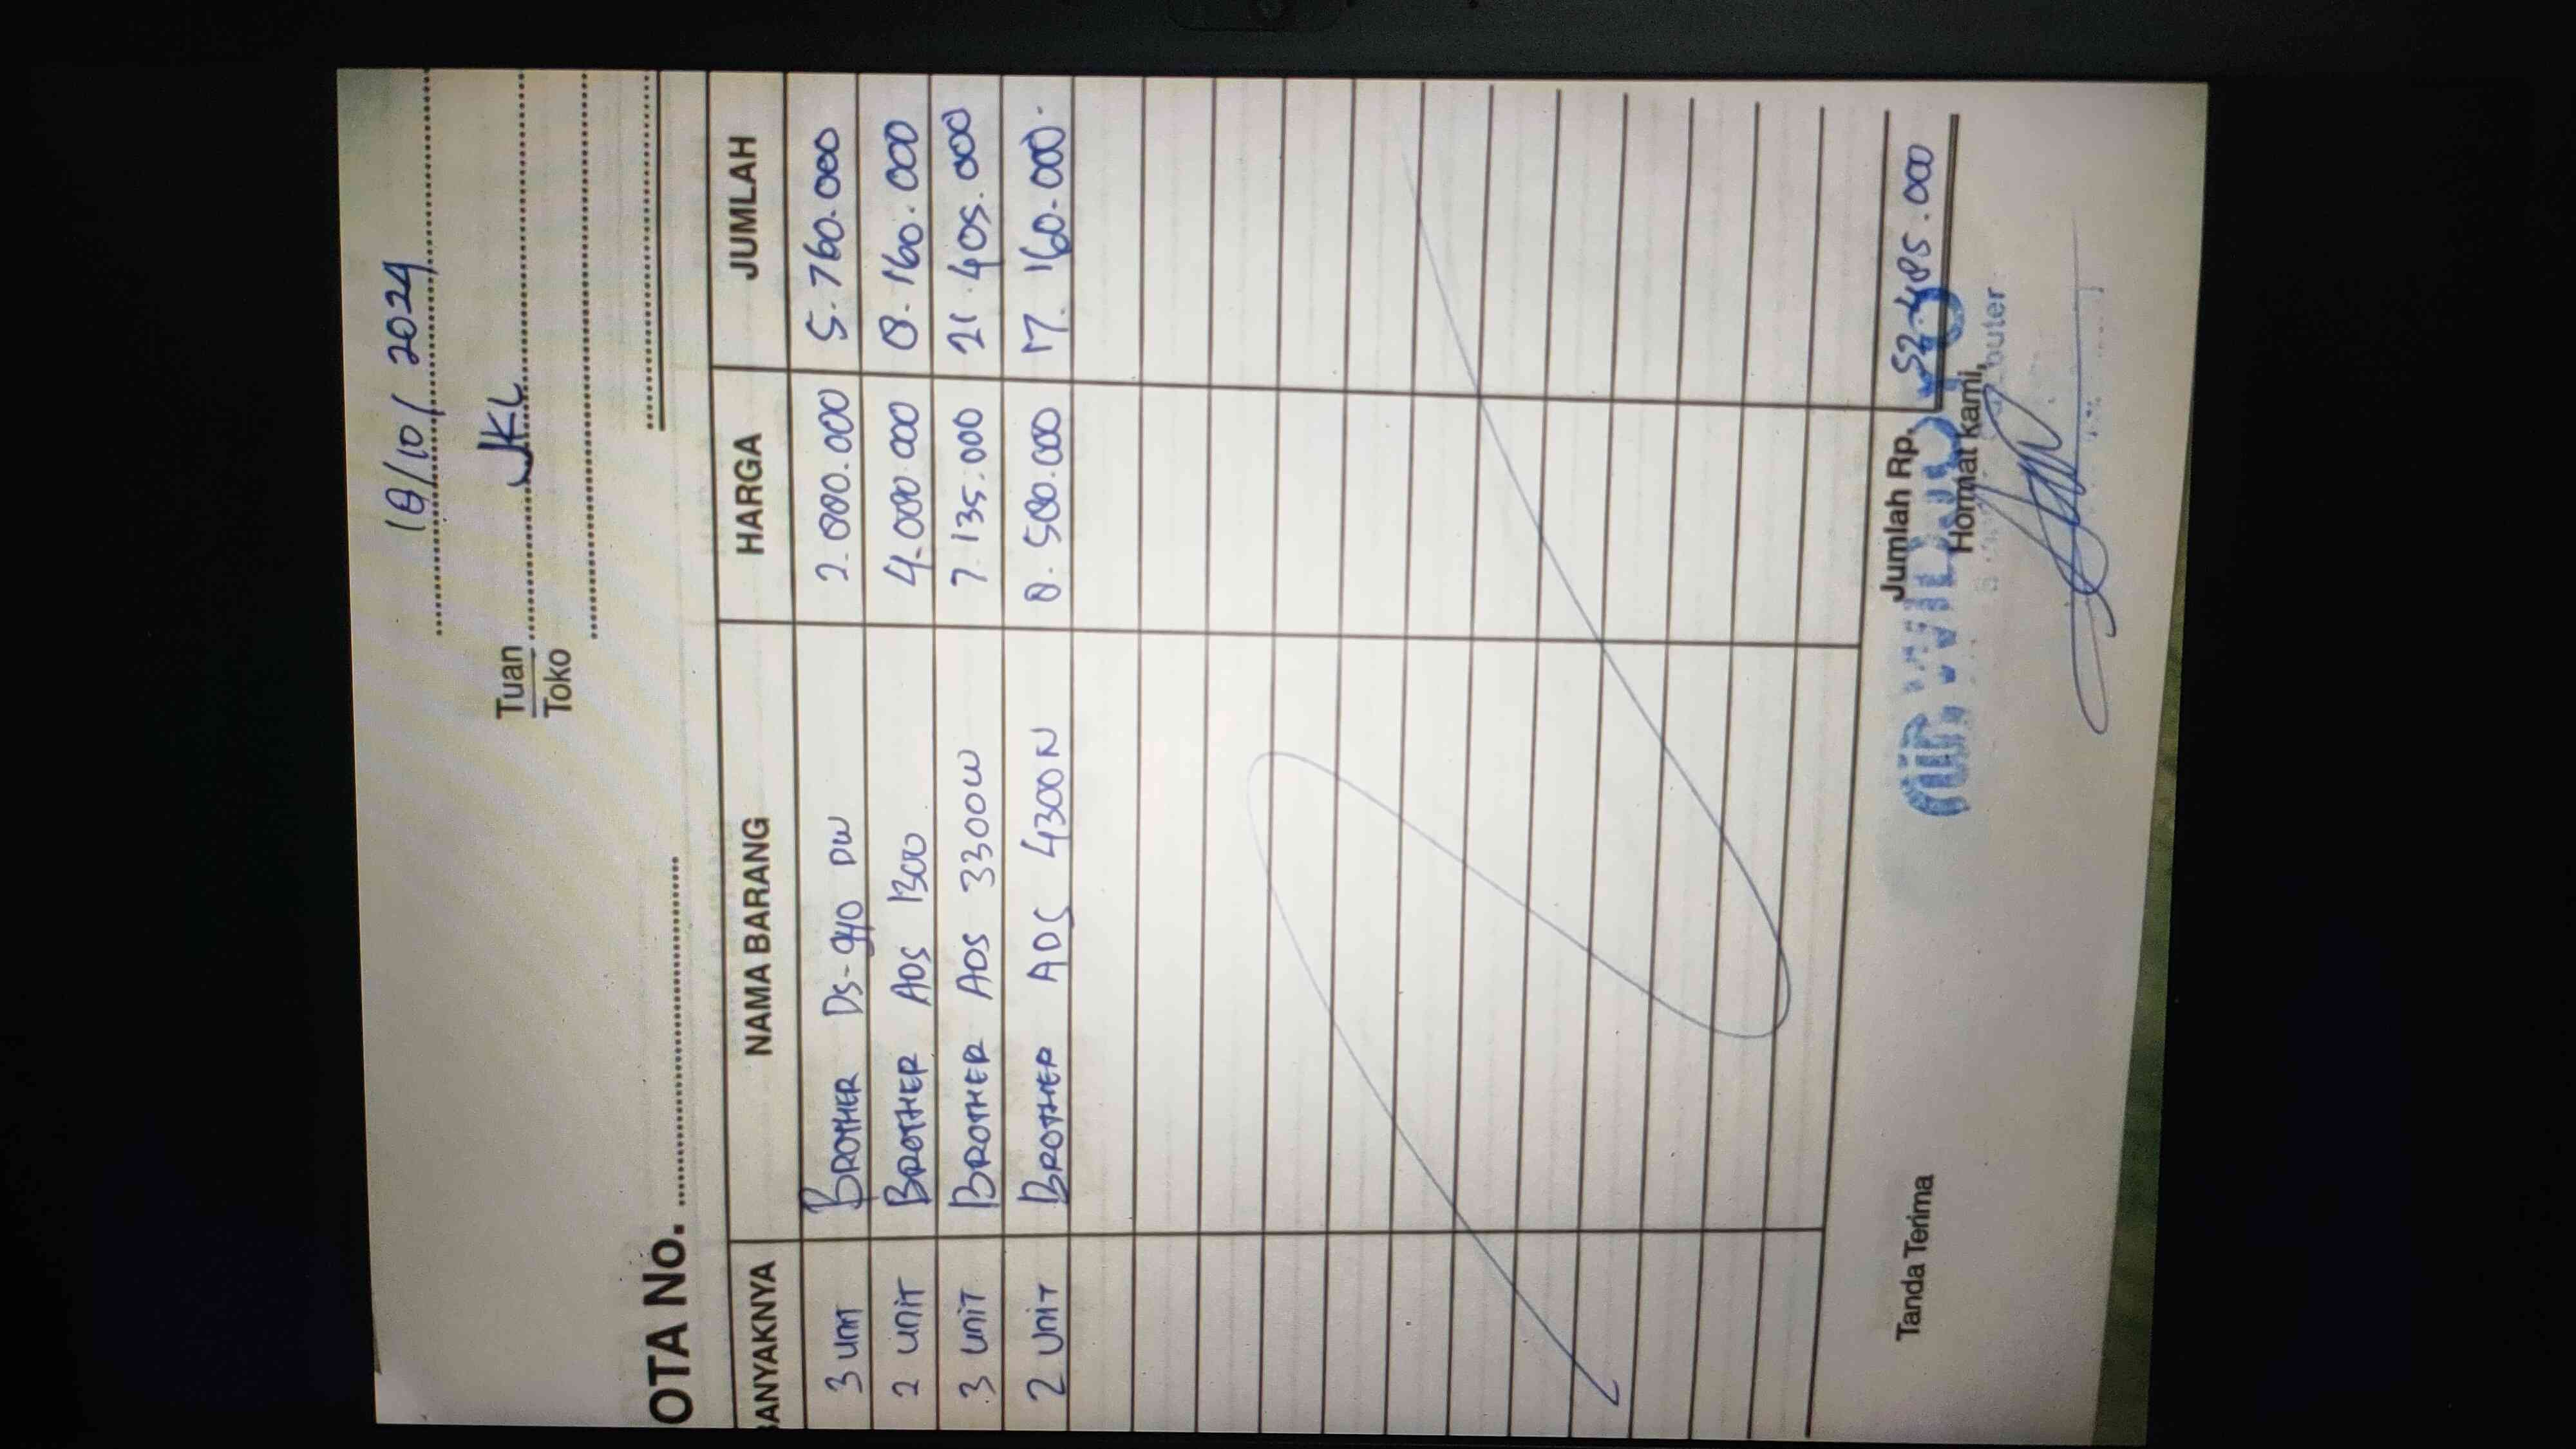 18/10/2024
Tuan JKL
Toko
OTA No.
BANYAKNYA NAMA BARANG HARGA JUMLAH
3 unit BROTHER DS-940 DW 2.880.000 5.760.000
2 UNIT BROTHER ADS 1300 4.080.000 8.160.000
3 UNIT BROTHER ADS 3300W 7.135.000 21.405.000
2 UNIT BROTHER ADS 4300N 8.580.000 17.160.000-
Jumlah Rp. 52.485.000
Tanda Terima Hormat kami,